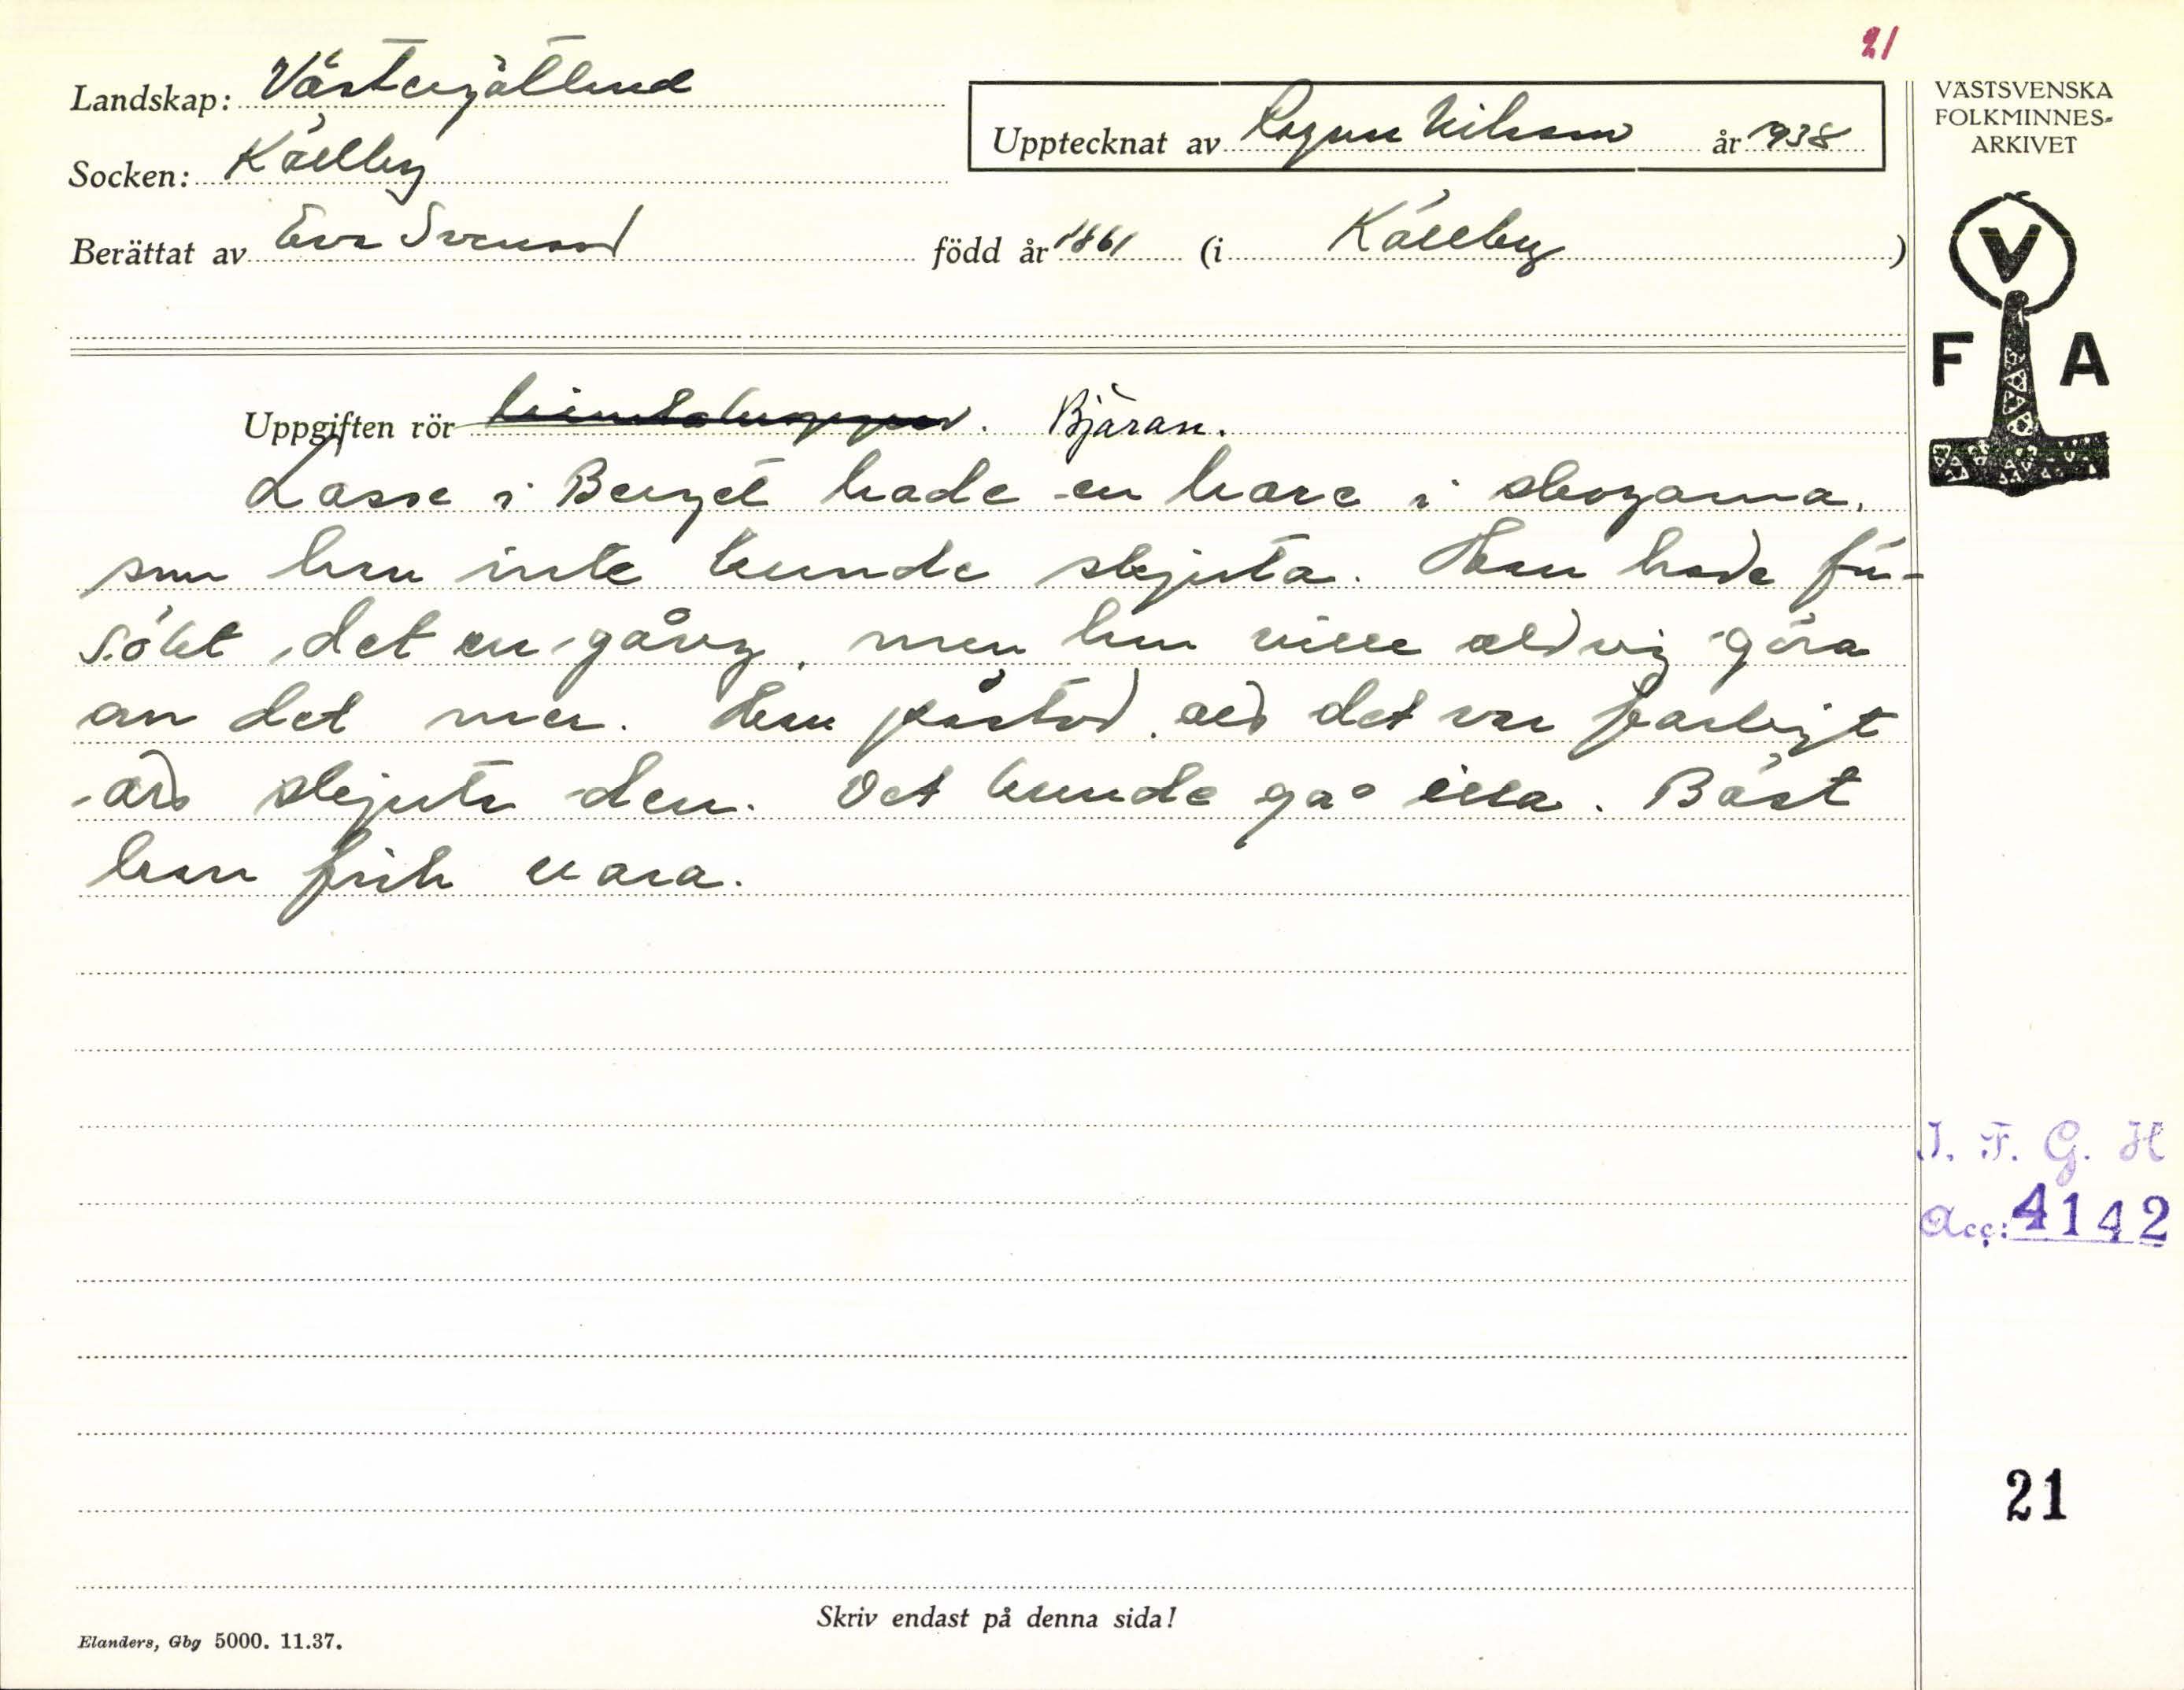 21
Landskap: Västergötland
Socken: Källby
Berättat av Eva Svensson född år 1861 (i Källby)
Upptecknat av Ragnar Nilsson år 1938
VÄSTSVENSKA
FOLKMINNES-
ARKIVET
V
F A
Uppgiften rör Bjäran.
Lasse i Berget hade en hare i skogarna,
som han inte kunde skjuta. Han hade för-
sökt det en gång, men han ville aldrig göra
om det mer. Han påstod, att det var farligt
att skjuta den. Det kunde gå illa. Bäst
han fick vara.
J. F. G. H
Acc: 4142
21
Skriv endast på denna sida!
Elanders, Gbg 5000. 11.37.